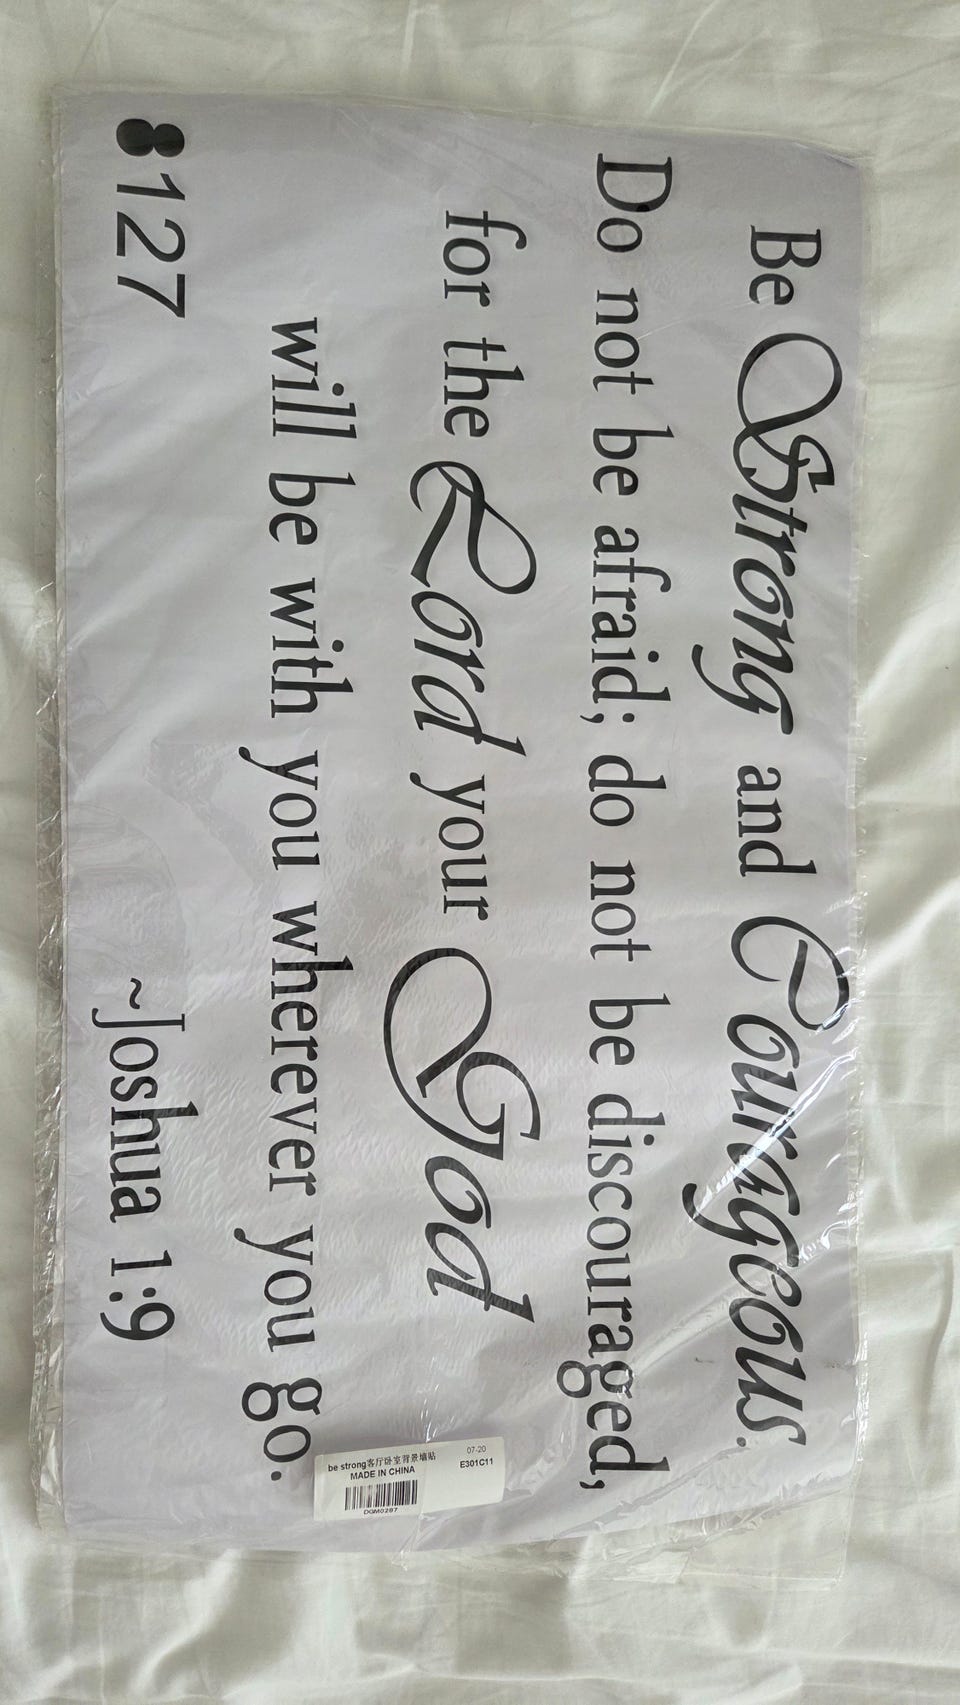 Be Strong and Courageous.
Do not be afraid; do not be discouraged,
for the Lord your God
will be with you wherever you go.
~Joshua 1:9
8127
07-20
E301C11
be strong客厅卧室背景墙贴
MADE IN CHINA
DGM0287